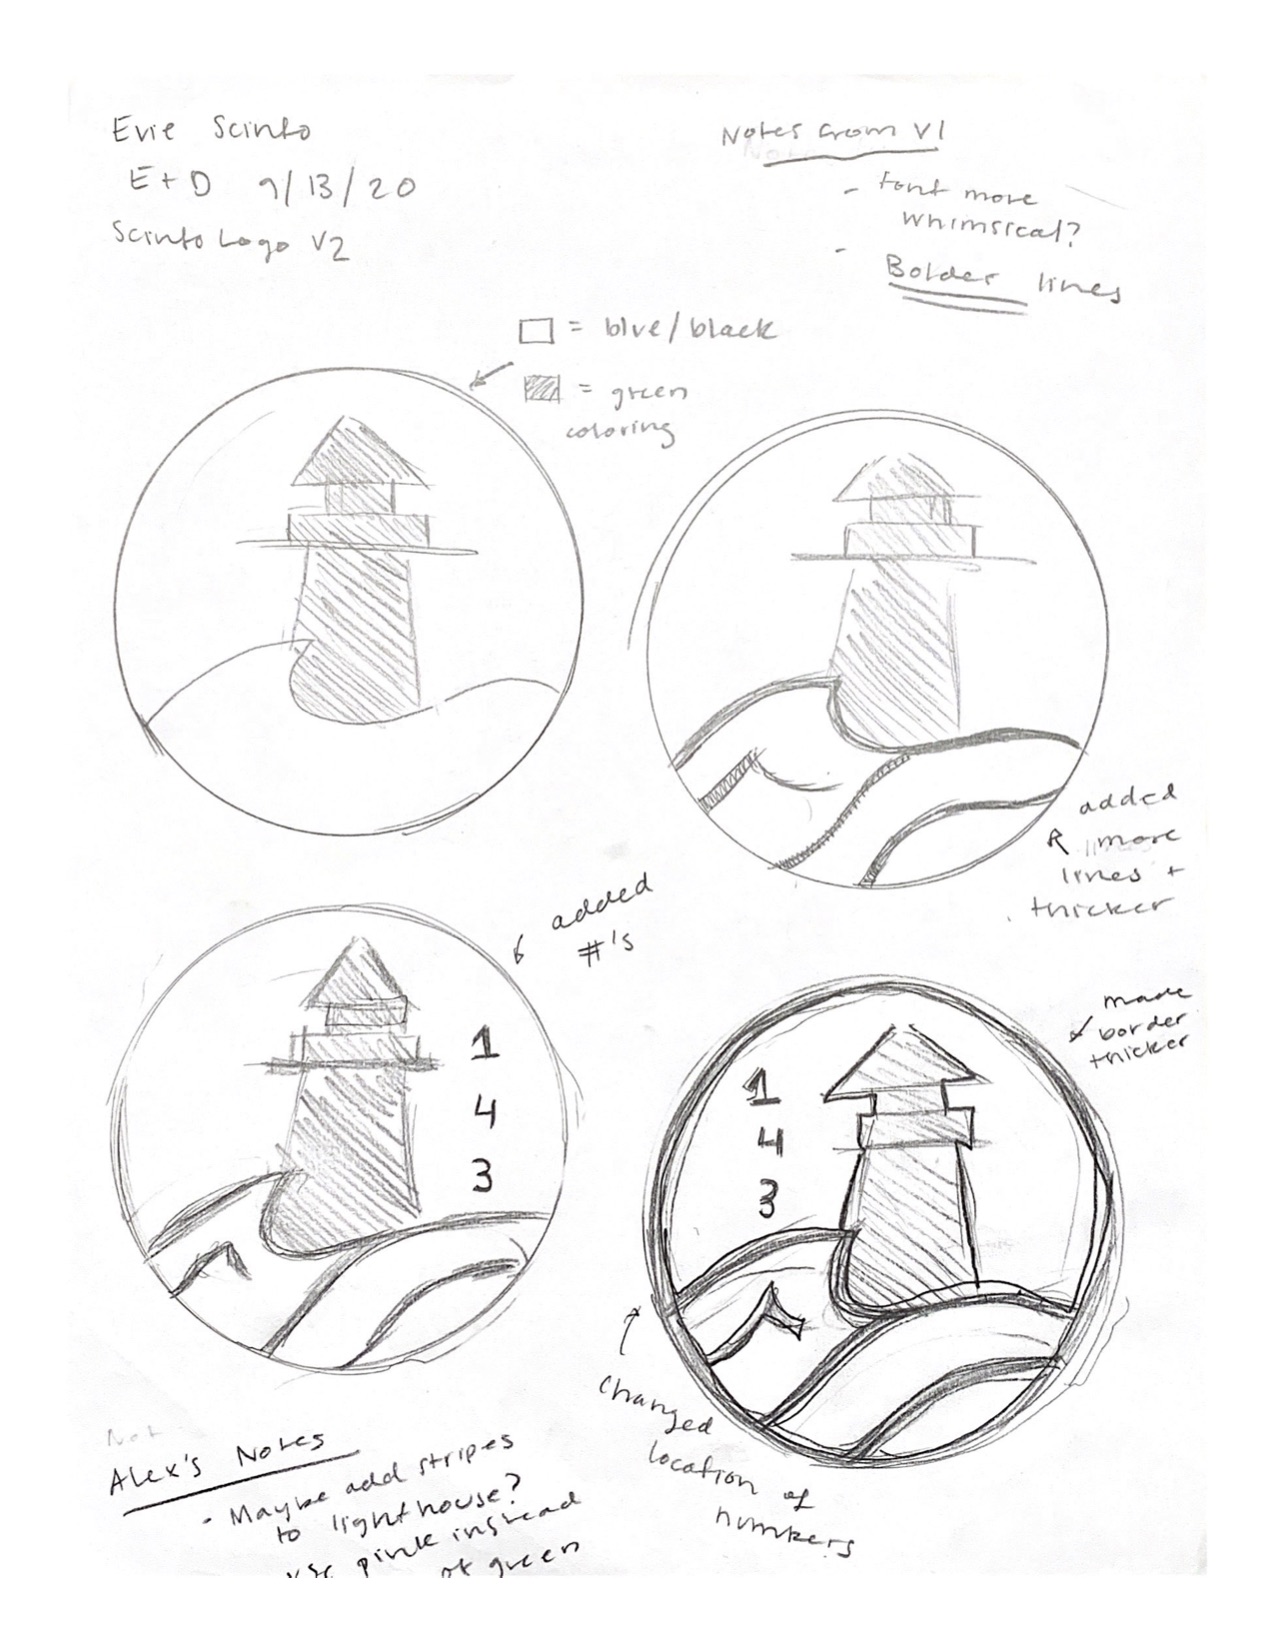 Evie Scinto
E+D 9/13/20
Scinto Logo V2
Notes from V1
- Font more
whimsical?
- Bolder lines
= blue/black
= green
coloring
added
more
lines +
thicker
added
#'s
1
4
3
made
border
thicker
1
4
3
changed
location of
numbers
Not
Alex's Notes
- Maybe add stripes
to lighthouse?
use pink instead
of green